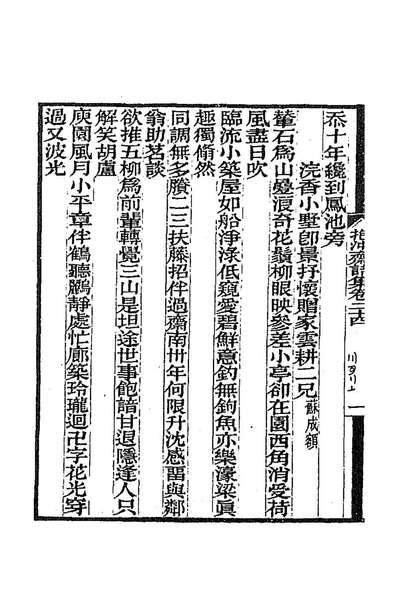 抱沖齋詩集卷
忝十年纔到鳳池旁
浣香小墅卽景抒懷贈家雲耕二兄蘇成額
輦石爲山疊浪奇花鬚柳眼映參差小亭卻在園西角消受荷
風盡日吹
臨流小築屋如船淨淥低窺愛碧鮮意釣無鉤魚亦樂濠梁眞
趣獨翛然
同調無多賸二三扶藤招伴過齋南卅年何限升沈感畱與鄰
翁助茗談
欲推五柳爲前輩轉覺三山是坦途世事飽諳甘退隱逢人只
解笑胡盧
庾園風月小平章伴鶴聽鸝靜處忙廊築玲瓏迴卍字花光穿
過又波光